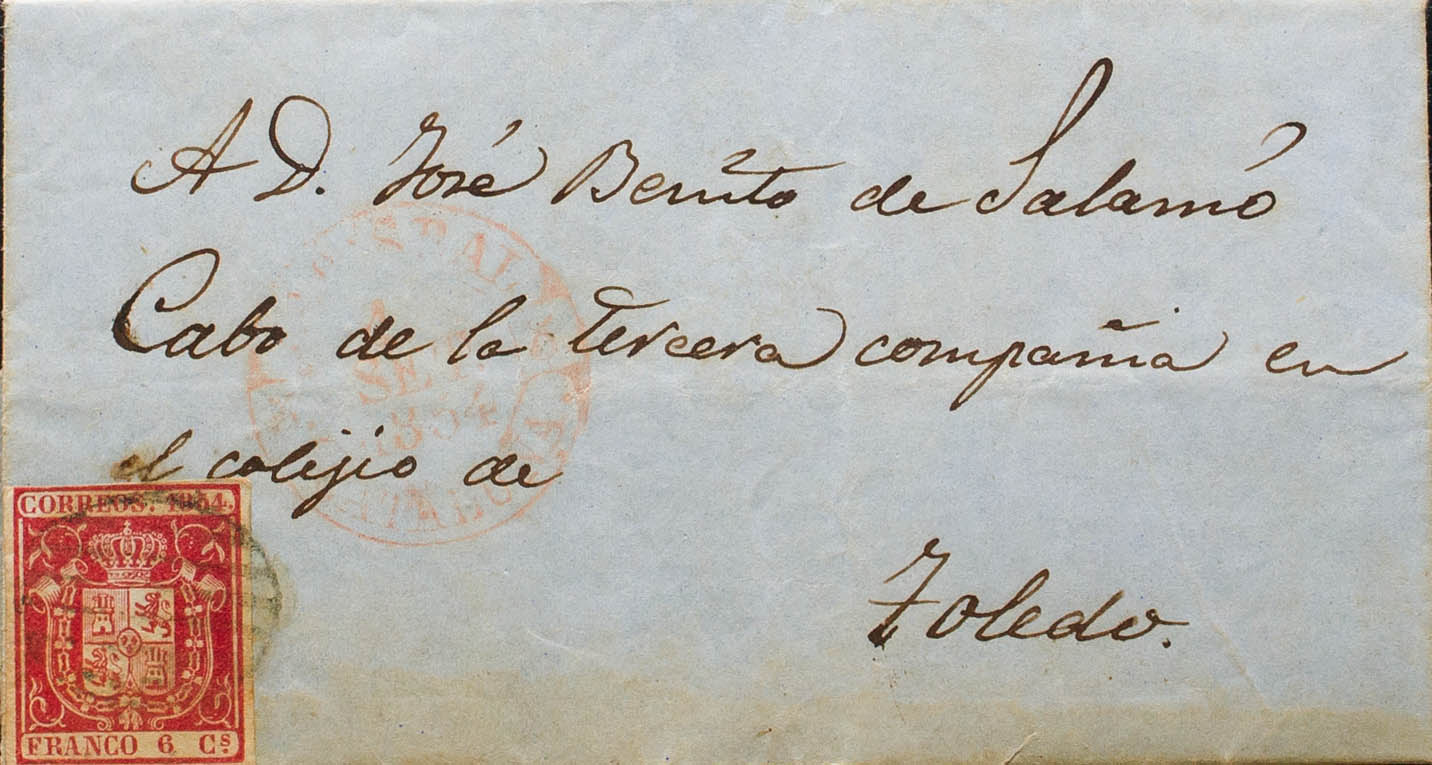 A D. José Benito de Salamó
Cabo de la tercera compañia en
el colijio de
Toledo.
SET
1854
CORREOS. 1854.
FRANCO 6 Cs.